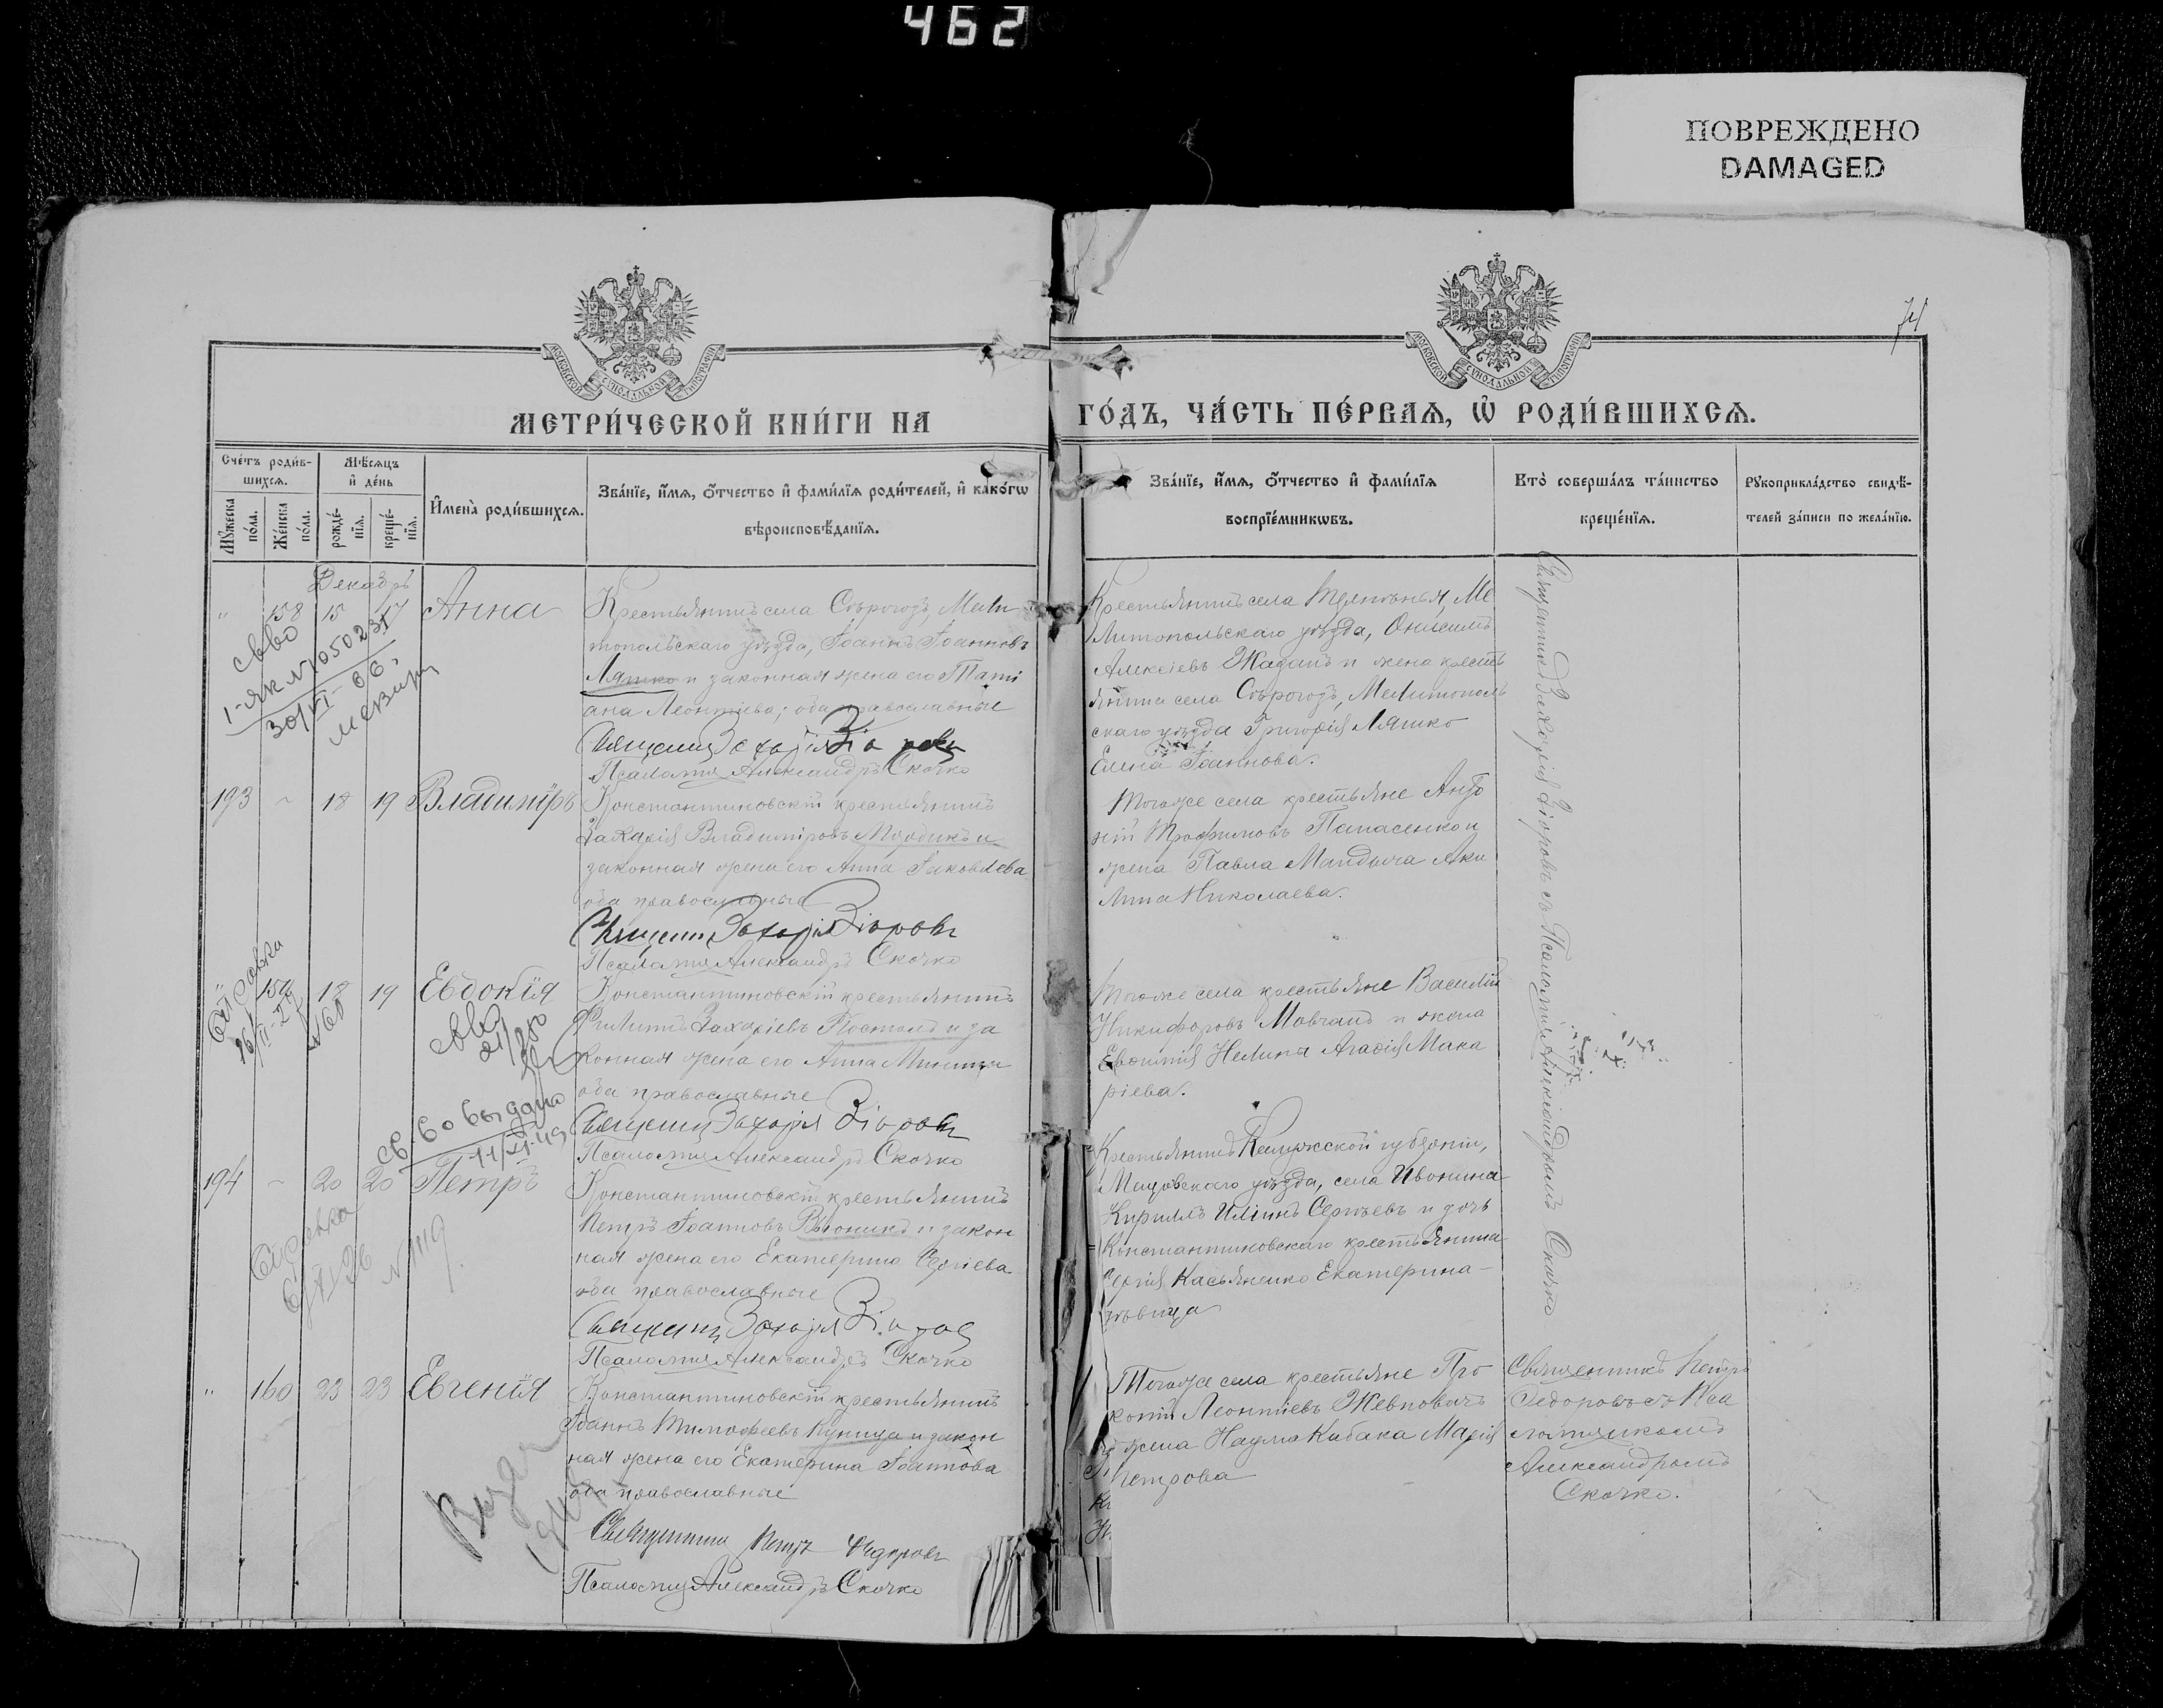 462
ПОВРЕЖДЕНО
DAMAGED
71
МОСКОВСКОЙ СѴНОДАЛЬНОЙ ТИПОГРАФІИ
МОСКОВСКОЙ СѴНОДАЛЬНОЙ ТИПОГРАФІИ
МЕТРИ́ЧЕСКОЙ КНИ́ГИ НА ГО́ДЪ, ЧА́СТЬ ПЕ́РВАѦ, Ѡ҆ РОДИ́ВШИХСѦ.
Сче́тъ роди́в-
шихсѧ.
Мꙋжеска по́ла.
Же́нска по́ла.
Мѣ́сѧцъ
и҆ де́нь
рожде́-
нїѧ.
креще́-
нїѧ.
И҆мена̀ роди́вшихсѧ.
Зва́нїе, и҆́мѧ, ѻ҆́тчество и҆ фами́лїѧ роди́телей, и҆ како́гѡ
вѣроисповѣ́данїѧ.
Зва́нїе, и҆́мѧ, ѻ҆́тчество и҆ фами́лїѧ
воспрїе́мникѡвъ.
Кто̀ соверша́лъ та́инство
креще́нїѧ.
Рꙋкоприкла́дство свидѣ́-
телей за́писи по жела́нїю.
Декабрь
" 158 15 17 Анна
Крестьянинъ села Сѣрогозъ, Мели
топольскаго уѣзда, Іоаннъ Іоанновъ
Ляшко и законная жена его Тати
ана Леонтіева; оба православные
Священникъ Захарія Зіоровъ
Псаломщ. Александръ Скочко
Крестьянинъ села
Ме
литопольскаго уѣзда, Онисимъ
Алексіевъ Жаданъ и жена кресть
янина села Сѣрогозъ, Мелитополь
скаго уѣзда Григорія Ляшко
Елена Іоаннова.
св-во
193 - 18 19 Владиміръ
Константиновскій крестьянинъ
Захарія Владиміровъ
и
законная жена его Анна Іаковлева
оба православные
Священникъ Захарія Зіоровъ
Псаломщ. Александръ Скочко
Тогоже села крестьяне Анто
ній Трофимовъ Панасенко и
жена Павла Мандыча Аку
лина Николаева.
" 159 18 19 Евдокія
Константиновскій крестьянинъ
Филиппъ Захаріевъ Постолъ и за
конная жена его Анна
оба православные
Священникъ Захарія Зіоровъ
Псаломщ. Александръ Скочко
Тогоже села крестьяне Василій
Никифоровъ Мовчанъ и жена
Евфимія Нелипа Агафія Мака
ріева.
Справка
св-во
св-во выдано
194 - 20 20 Петръ
Константиновскій крестьянинъ
Петръ Іоанновъ Вьюникъ и закон
ная жена его Екатерина Сергіева
оба православные
Священникъ Захарія Зіоровъ
Псаломщ. Александръ Скочко
Крестьянинъ Калужской губерніи,
Мещовскаго уѣзда, села Ивонина
Кириллъ Иліинъ Сергѣевъ и дочь
Константиновскаго крестьянина
Сергія Касьяненко Екатерина
дѣвица
Справка
" 160 23 23 Евгенія
Константиновскій крестьянинъ
Іоаннъ Тимофеевъ Куница и закон
ная жена его Екатерина Іоаннова
оба православные
Священникъ Петръ Федоровъ
Псаломщ Александръ Скочко
Тогоже села крестьяне Про
копій Леонтіевъ Жевновачъ
и жена Наума Кабака Марія
Петрова
Священникъ Захарія Зіоровъ съ Псаломщ. Александромъ Скочко
Священникъ Петръ
Федоровъ съ Пса
ломщикомъ
Александромъ
Скочко.